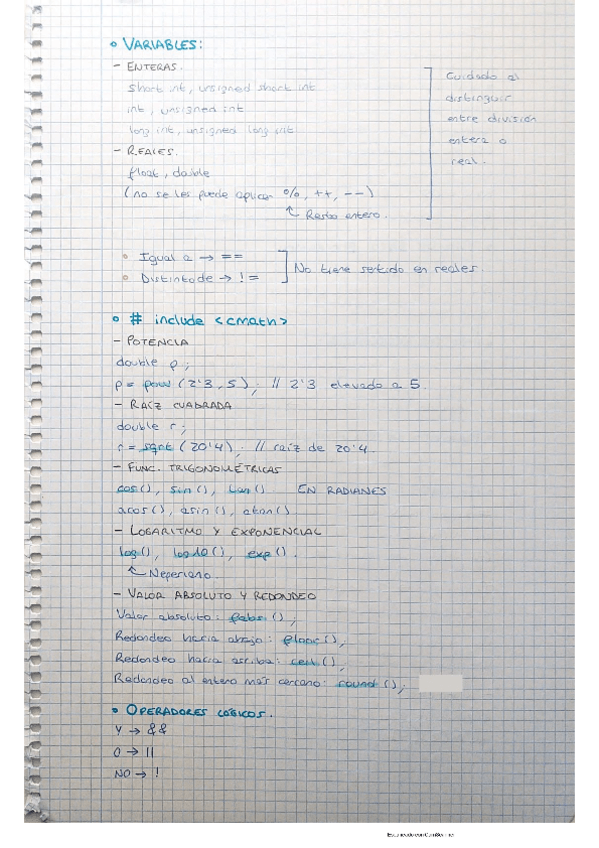 • VARIABLES:
- ENTERAS.
short int, unsigned short int
int, unsigned int
long int, unsigned long int
- REALES.
float, double
(no se les puede aplicar %, ++, --)
↑ Resto entero.
Cuidado al
distinguir
entre división
entera o
real.
• Igual a → ==
• Distinto de → !=
No tiene sentido en reales.
• # include <cmath>
- POTENCIA
double p;
p = pow (2'3, 5); // 2'3 elevado a 5.
- RAÍZ CUADRADA
double r;
r = sqrt (20'4); // raíz de 20'4.
- FUNC. TRIGONOMÉTRICAS
cos(), sin(), tan(). EN RADIANES
acos(), asin(), atan()
- LOGARITMO Y EXPONENCIAL
log(), log10(), exp().
↑ Neperiano.
- VALOR ABSOLUTO Y REDONDEO
Valor absoluto: fabs ();
Redondeo hacia abajo: floor();
Redondeo hacia arriba: ceil();
Redondeo al entero más cercano: round();
• OPERADORES LÓGICOS.
Y → &&
O → ||
NO → !
Escaneado con CamScanner